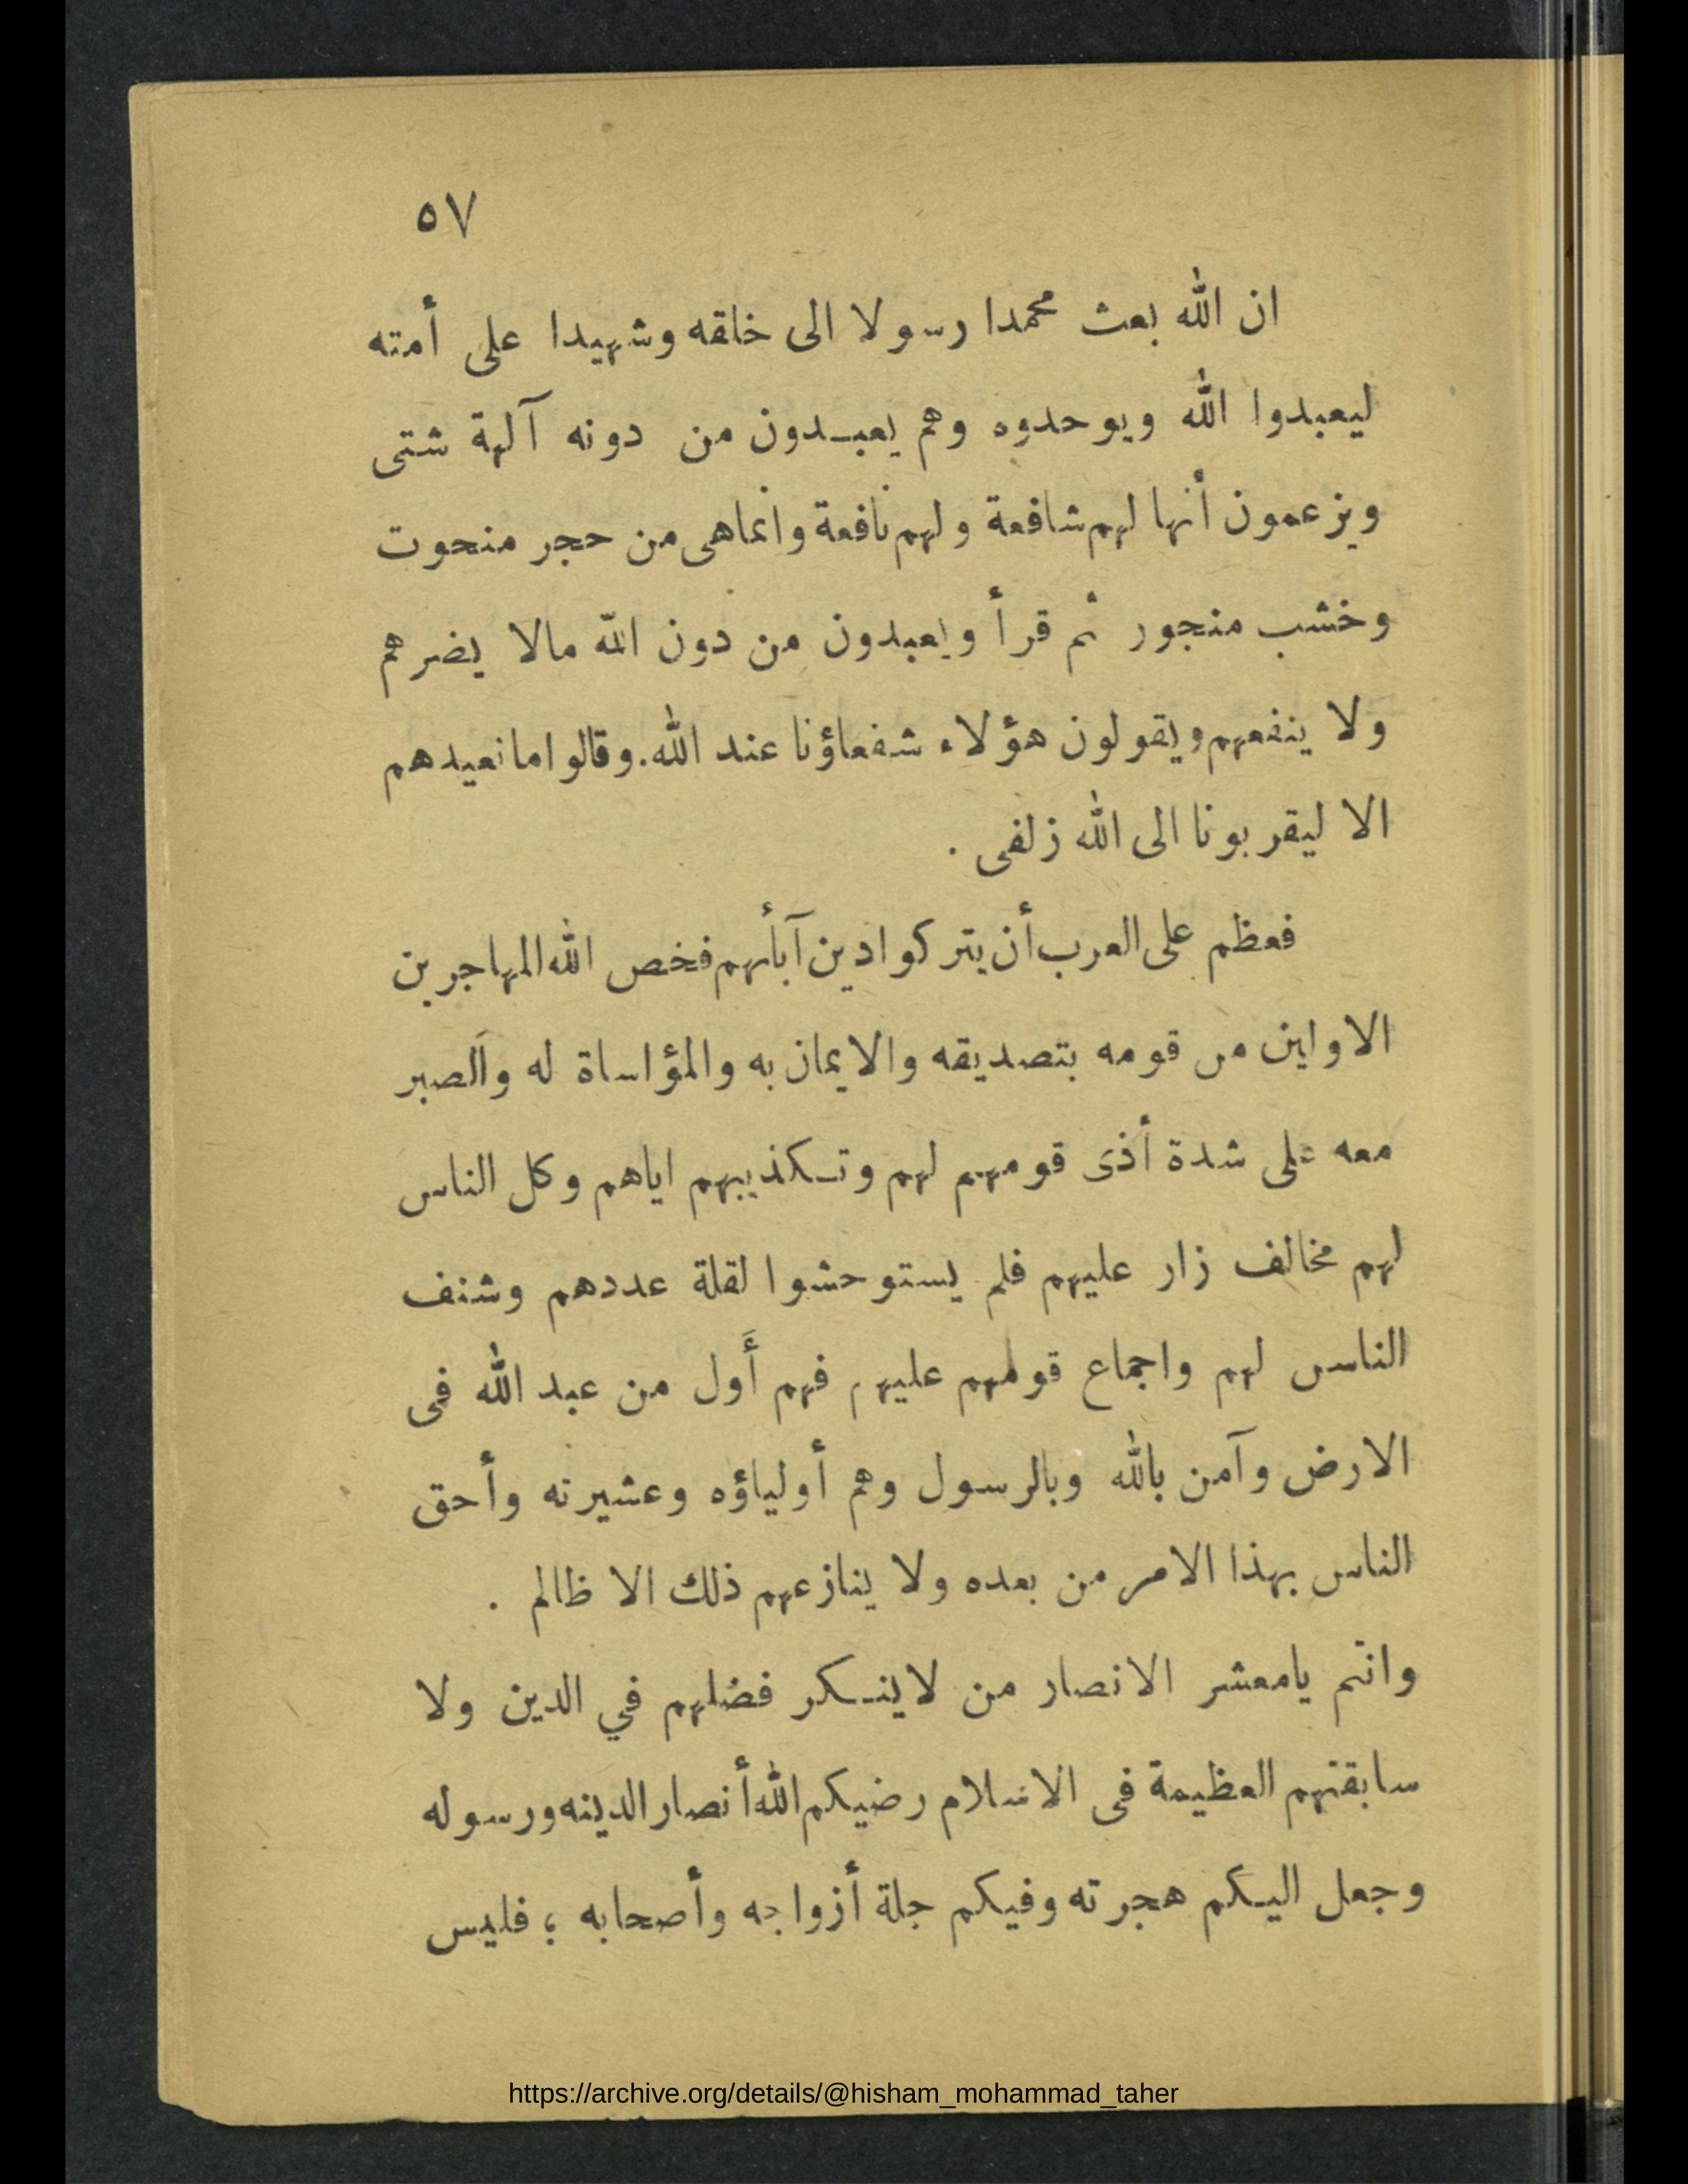 ٥٧
ان الله بعث محمدا رسولا الى خلقه وشهيدا على أمته
ليعبدوا الله ويوحدوه وهم يعبـدون من دونه آلهة شتى
ويزعمون أنها لهم شافعة ولهم نافعة وانماهى من حجر منحوت
وخشب منجور ثم قرأ ويعبدون من دون الله مالا يضرهم
ولا ينفعهم ويقولون هؤلاء شفعاؤنا عند الله. وقالوا مانعبدهم
الا ليقربونا الى الله زلفى .
فعظم على العرب أن يتركوا دين آبأئهم فخص الله المهاجرين
الاولين من قومه بتصديقه والايمان به والمؤاساة له والصبر
معه على شدة أذى قومهم لهم وتـكذيبهم اياهم وكل الناس
لهم مخالف زار عليهم فلم يستوحشوا لقلة عددهم وشنف
الناس لهم واجماع قومهم عليهم فهم أَول من عبد الله فى
الارض وآمن بالله وبالرسول وهم أولياؤه وعشيرته وأحق
الناس بهذا الامر من بعده ولا ينازعهم ذلك الا ظالم .
وانتم يامعشر الانصار من لاينـكر فضلهم في الدين ولا
سابقتهم العظيمة فى الاسلام رضيكم الله أنصارا لدينه ورسوله
وجعل اليـكم هجرته وفيكم جلة أزواجه وأصحابه ؛ فليس
https://archive.org/details/@hisham_mohammad_taher